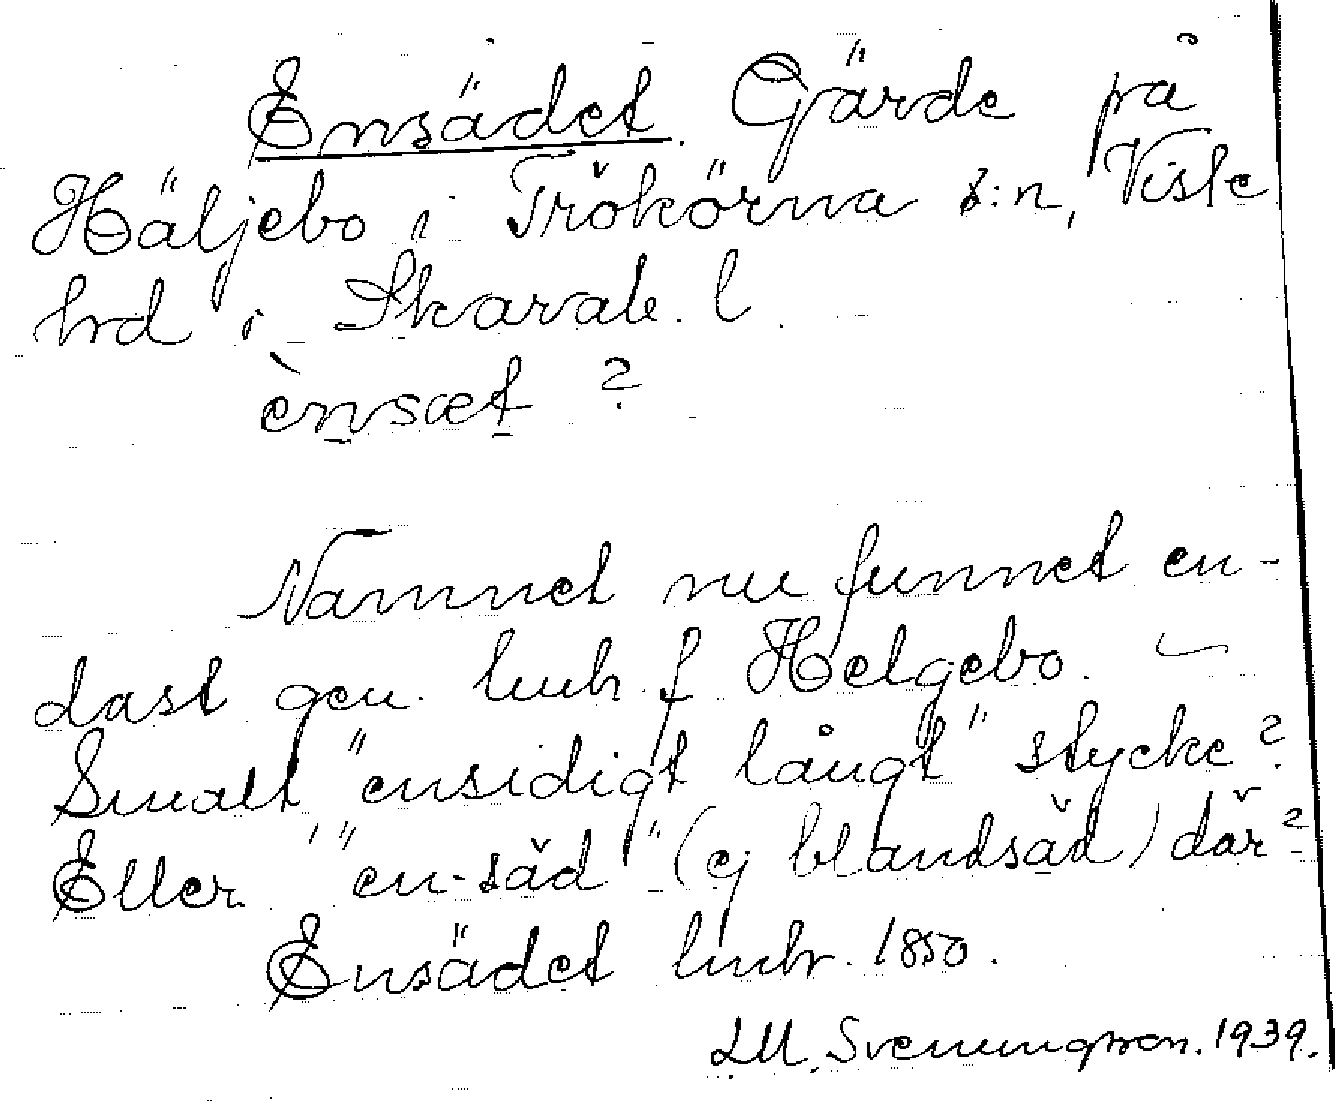 Ensädet. Gärde på
Häljebo i Trökörna s:n, Viste
hrd i Skarab. l.
ènsæt ?
Namnet nu funnet en-
dast gen. lmhr. f Helgebo. –
Smalt "ensidigt långt" stycke?
Eller "en-säd" (ej blandsäd) där?
Ensädet lmhr. 1850.
LM. Svenungsson. 1939.